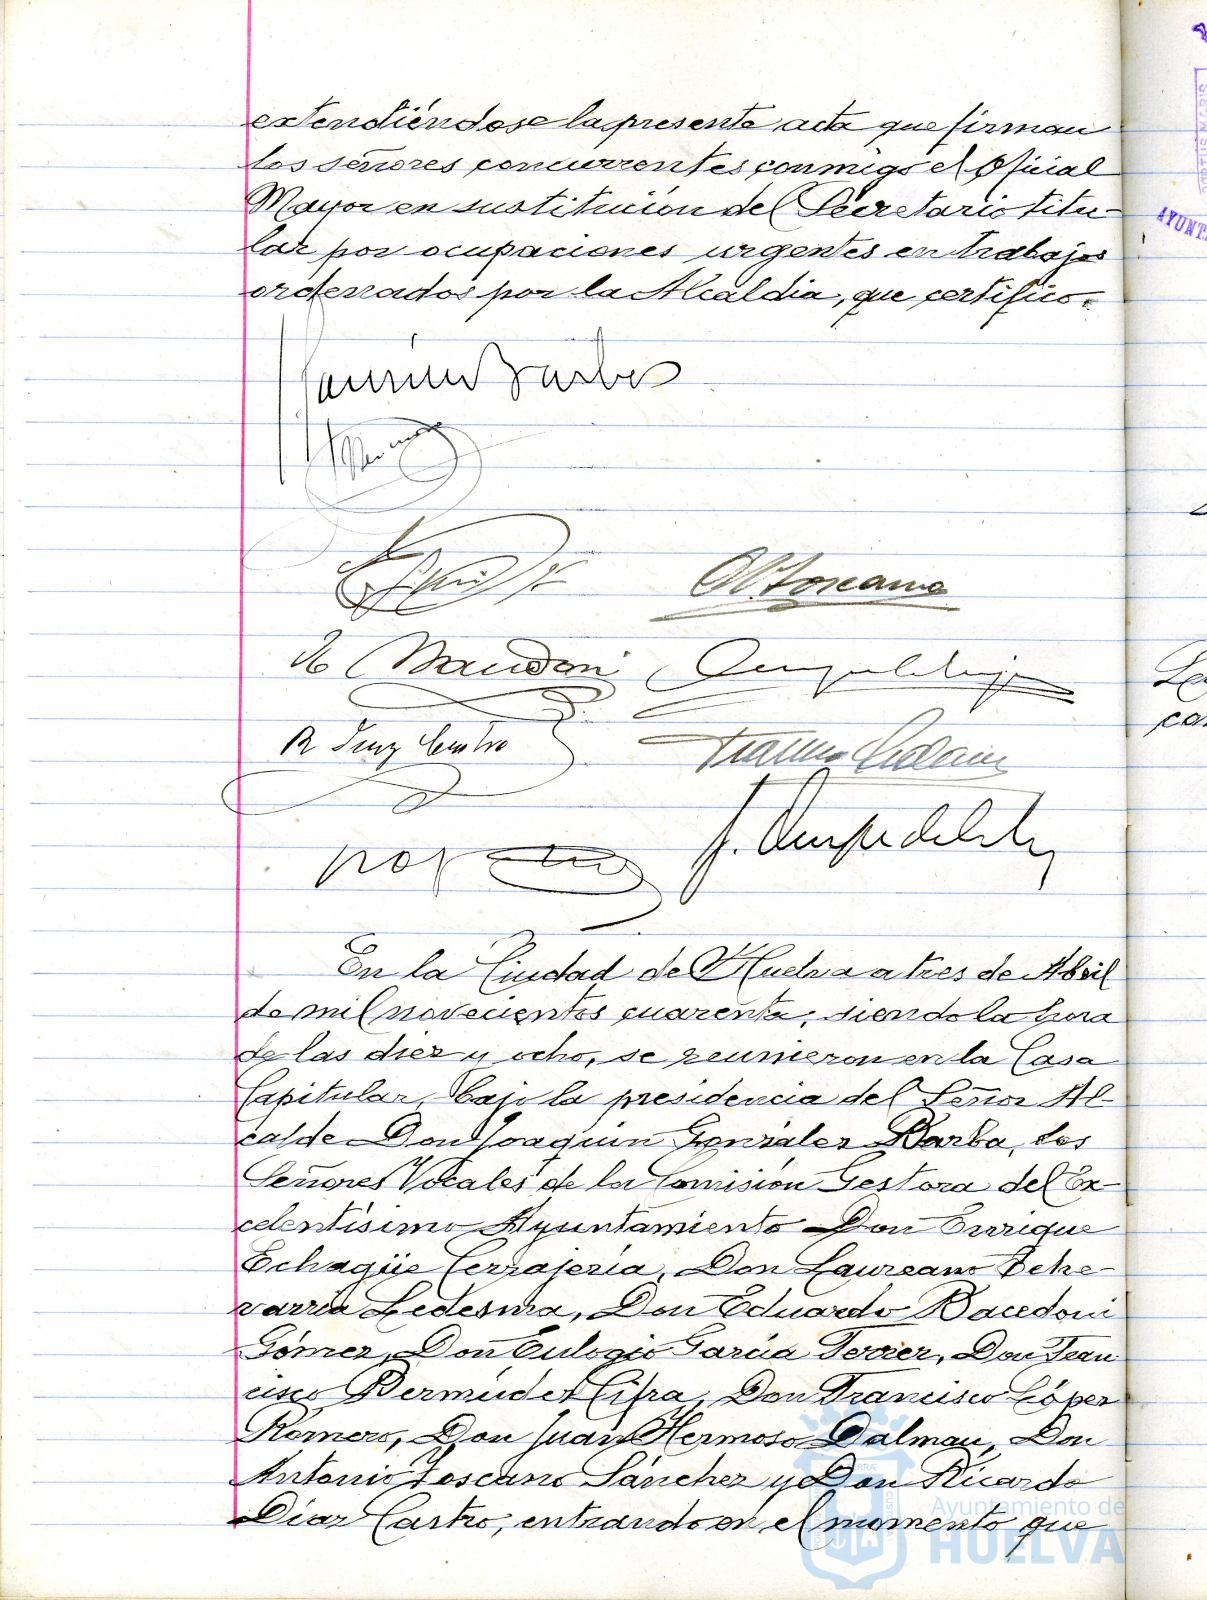 extendiéndose la presente acta que firman
los señores concurrentes conmigo el Oficial
Mayor en sustitución del Secretario titu-
lar por ocupaciones urgentes en trabajos
ordenados por la Alcaldia, que certifico.
A. Toscano
R Diaz Castro
En la Ciudad de Huelva a tres de Abril
de mil novecientos cuarenta, siendo la hora
de las diez y ocho, se reunieron en la Casa
Capitular, bajo la presidencia del Señor Al-
calde Don Joaquín González Barba, los
Señores Vocales de la Comisión Gestora del Ex-
celentísimo Ayuntamiento Don Enrique
Echagüe Cerrajería, Don Laureano Eche-
varria Ledesma, Don Eduardo Bacedoni
Gómez, Don Eulogio García Ferrer, Don Fran
cisco Bermúdez Cifra, Don Francisco López
Romero, Don Juan Hermoso Dalmau, Don
Antonio Toscano Sánchez y Don Ricardo
Díaz Castro, entrando en el momento que
Ayuntamiento de
HUELVA